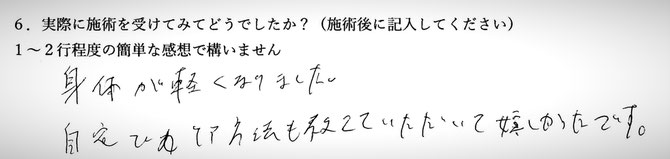 6．実際に施術を受けてみてどうでしたか？（施術後に記入してください）
1～2行程度の簡単な感想で構いません
身体が軽くなりました。
自宅でのケア方法も教えていただいて嬉しかったです。